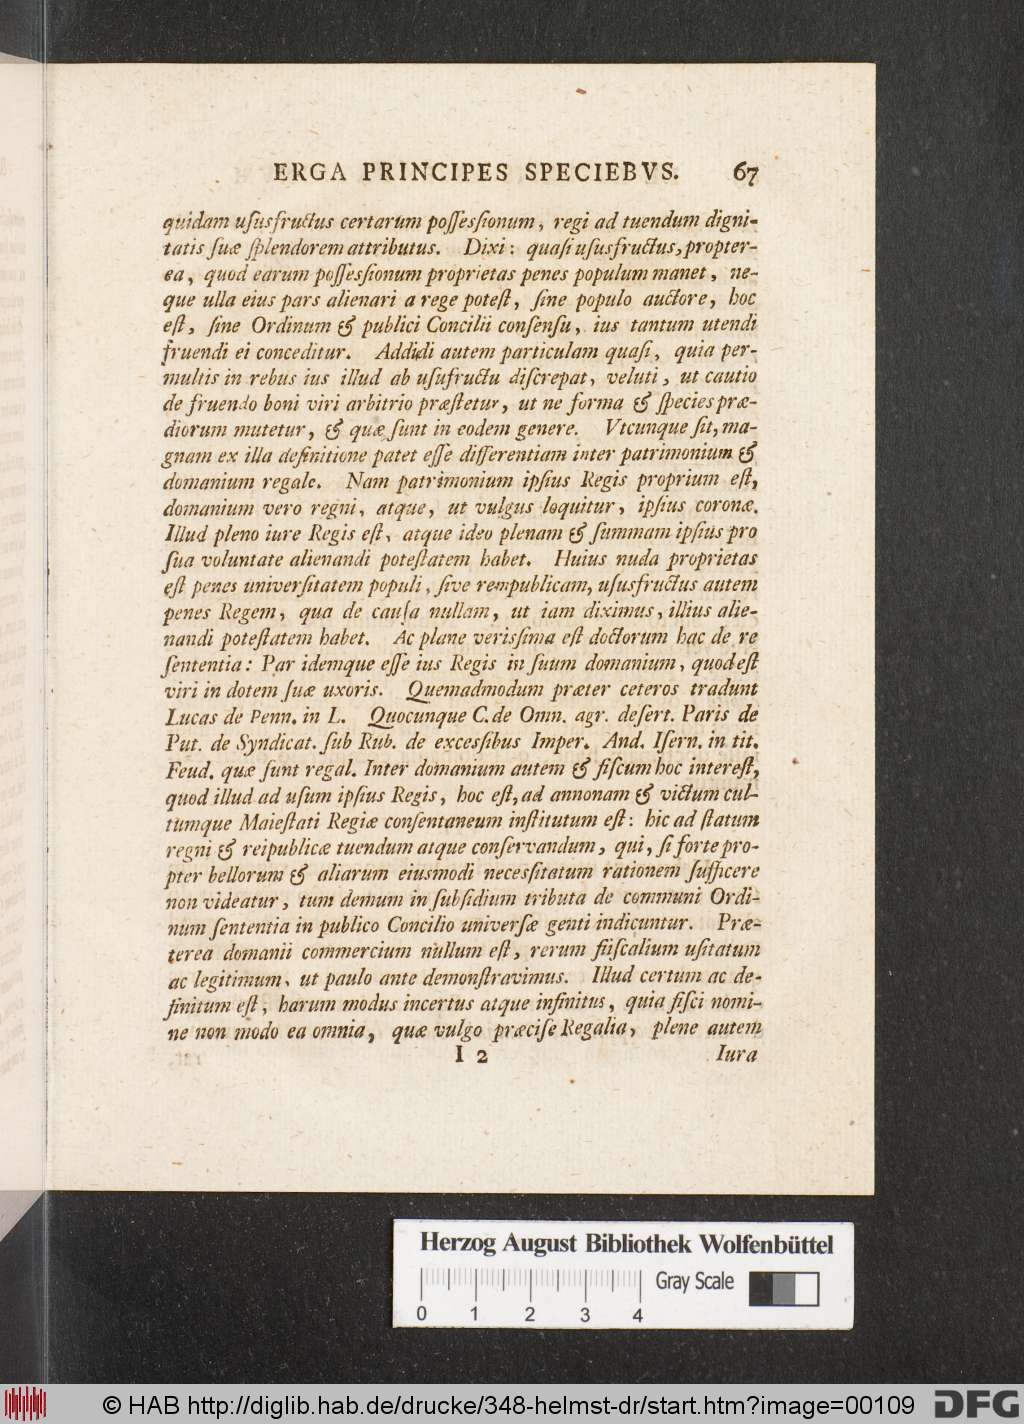 ERGA PRINCIPES SPECIEBVS. 67
quidam uſusfructus certarum poſſeſsionum, regi ad tuendum digni-
tatis ſuæ ſplendorem attributus. Dixi: quaſi uſusfructus, propter-
ea, quod earum poſſeſsionum proprietas penes populum manet, ne-
que ulla eius pars alienari a rege poteſt, ſine populo auctore, hoc
eſt, ſine Ordinum & publici Concilii conſenſu, ius tantum utendi
fruendi ei conceditur. Addidi autem particulam quaſi, quia per-
multis in rebus ius illud ab uſufructu diſcrepat, veluti, ut cautio
de fruendo boni viri arbitrio præſtetur, ut ne forma & ſpecies præ-
diorum mutetur, & quæ ſunt in eodem genere. Vtcunque ſit, ma-
gnam ex illa definitione patet eſſe differentiam inter patrimonium &
domanium regale. Nam patrimonium ipſius Regis proprium eſt,
domanium vero regni, atque, ut vulgus loquitur, ipſius coronæ.
Illud pleno iure Regis eſt, atque ideo plenam & ſummam ipſius pro
ſua voluntate alienandi poteſtatem habet. Huius nuda proprietas
eſt penes univerſitatem populi, ſive rempublicam, uſusfructus autem
penes Regem, qua de cauſa nullam, ut iam diximus, illius alie-
nandi poteſtatem habet. Ac plane verisſima eſt doctorum hac de re
ſententia: Par idemque eſſe ius Regis in ſuum domanium, quod eſt
viri in dotem ſuæ uxoris. Quemadmodum præter ceteros tradunt
Lucas de Penn. in L. Quocunque C. de Omn. agr. deſert. Paris de
Put. de Syndicat. ſub Rub. de excesſibus Imper. And. Iſern. in tit.
Feud. quæ ſunt regal. Inter domanium autem & fiſcum hoc intereſt,
quod illud ad uſum ipſius Regis, hoc eſt, ad annonam & victum cul-
tumque Maieſtati Regiæ conſentaneum inſtitutum eſt: hic ad ſtatum
regni & reipublicæ tuendum atque conſervandum, qui, ſi forte pro-
pter bellorum & aliarum eiusmodi necesſitatum rationem ſufficere
non videatur, tum demum in ſubſidium tributa de communi Ordi-
num ſententia in publico Concilio univerſæ genti indicuntur. Præ-
terea domanii commercium nullum eſt, rerum fiiſcalium uſitatum
ac legitimum, ut paulo ante demonſtravimus. Illud certum ac de-
finitum eſt, harum modus incertus atque infinitus, quia fiſci nomi-
ne non modo ea omnia, quæ vulgo præciſe Regalia, plene autem
I 2 Iura
Herzog August Bibliothek Wolfenbüttel
Gray Scale
0 1 2 3 4
© HAB http://diglib.hab.de/drucke/348-helmst-dr/start.htm?image=00109
DFG